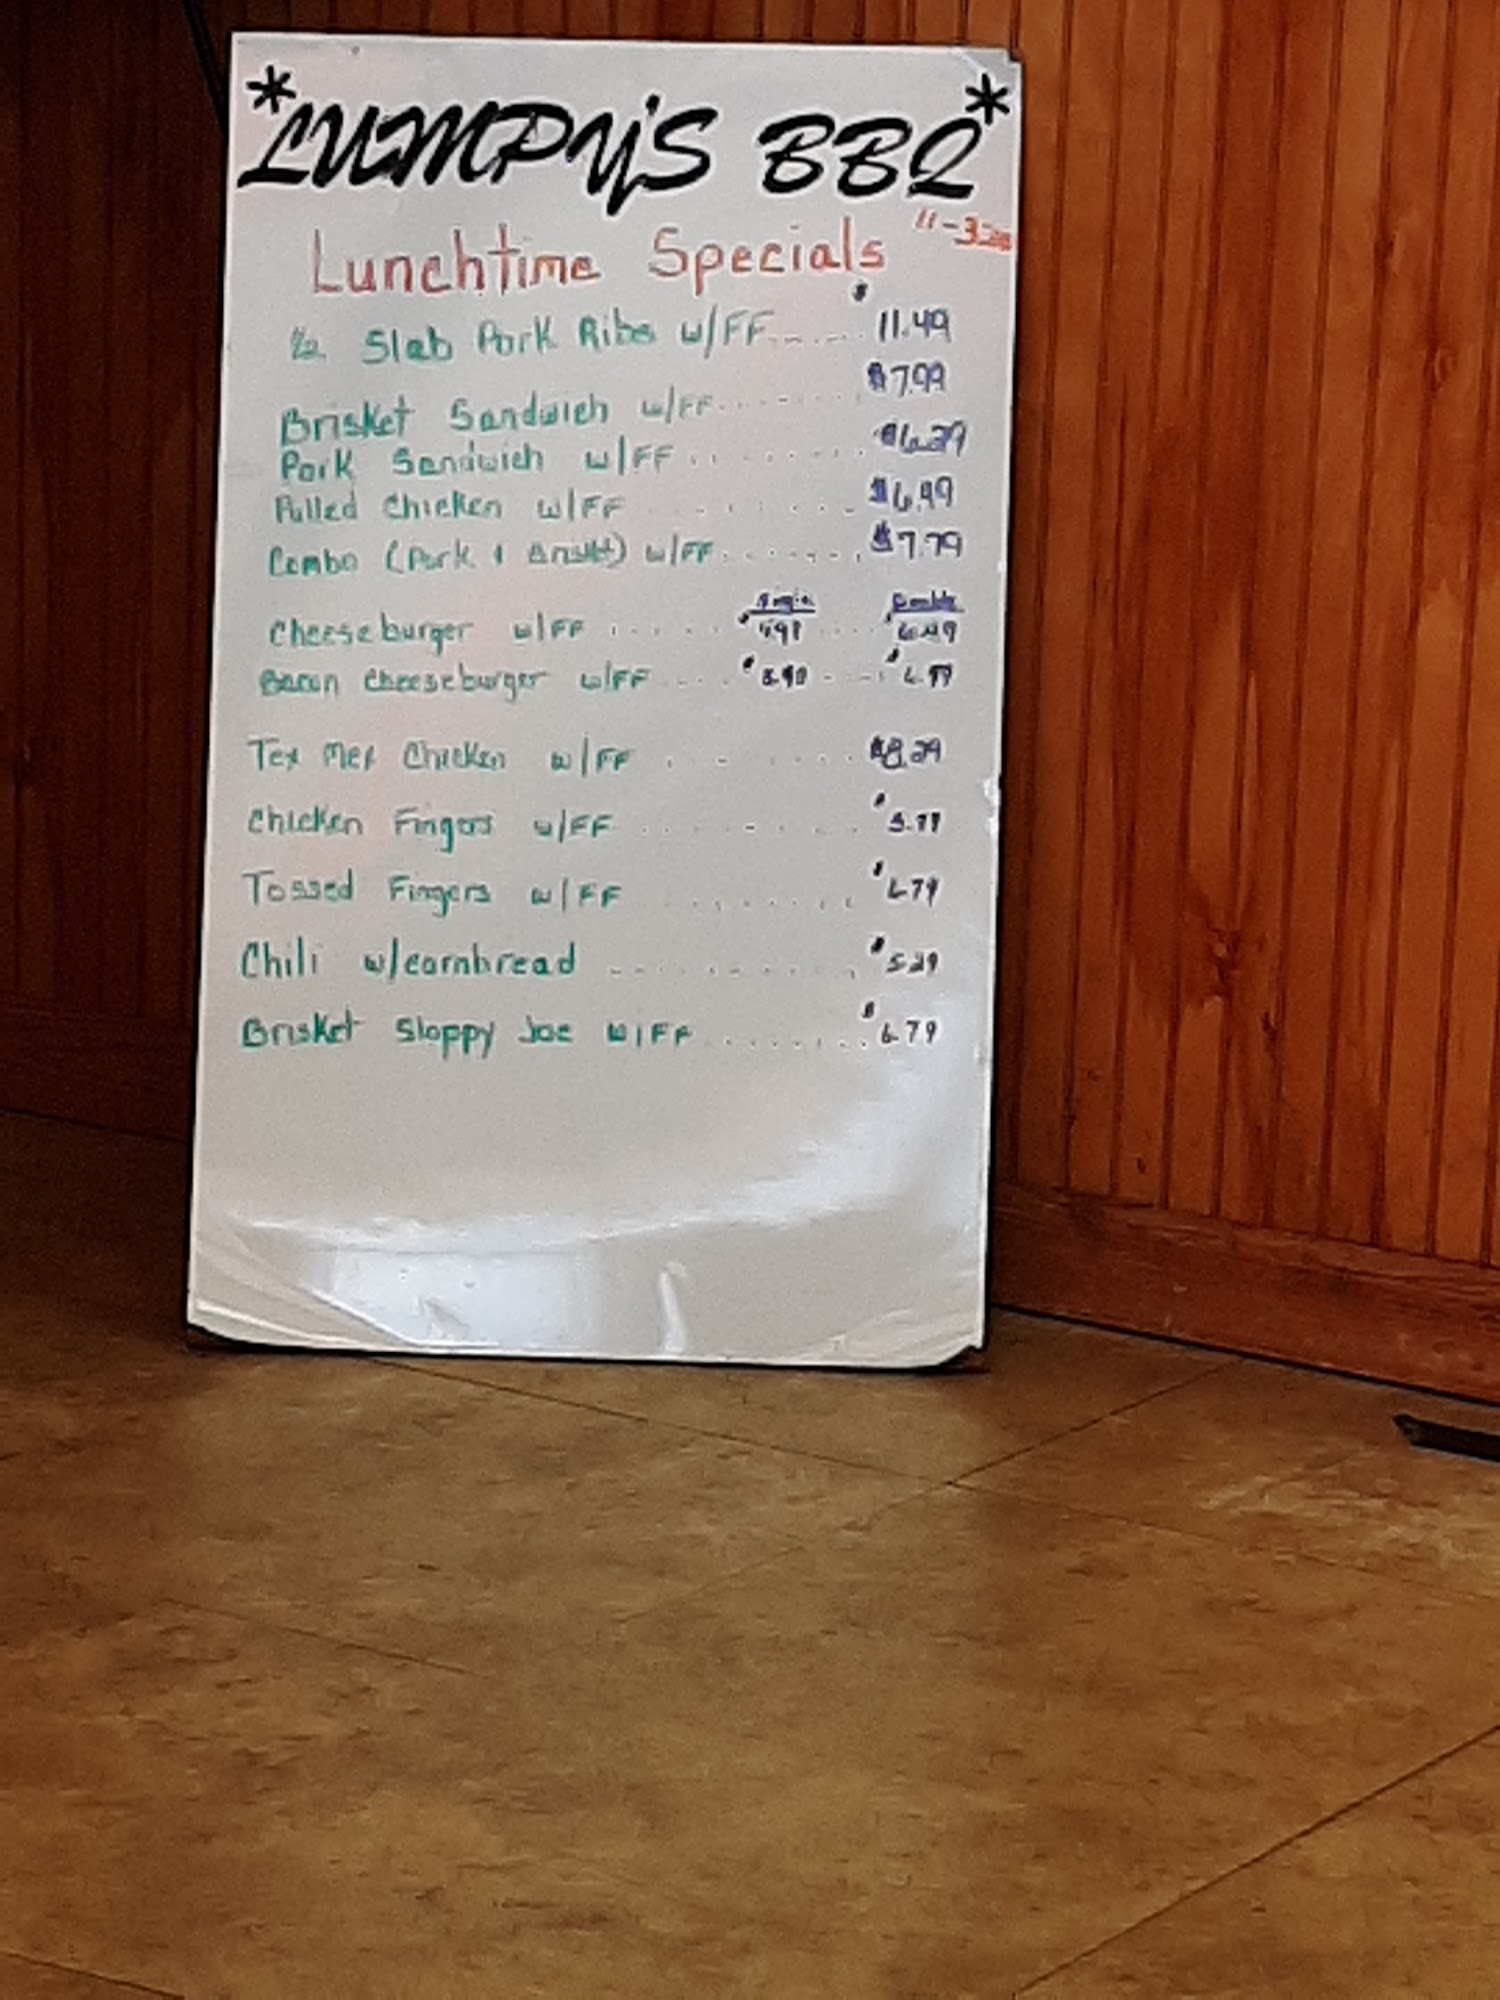 *LUMPY'S BBQ*
Lunchtime Specials 11-3
1/2 Slab Pork Ribs w/FF....... $11.49
Brisket Sandwich w/FF........ $7.99
Pork Sandwich w/FF ......... $6.29
Pulled Chicken w/FF ......... $6.99
Combo (Pork & Brisket) w/FF........ $7.79
Single Double
Cheeseburger w/FF ...... ..... $6.49
Bacon Cheeseburger w/FF .... $5.90 ..... $6.99
Tex Mex Chicken w/FF ........ $8.29
Chicken Fingers w/FF ........ $5.99
Tossed Fingers w/FF ........ $6.79
Chili w/cornbread .......... $5.29
Brisket Sloppy Joe w/FF ........ $6.79